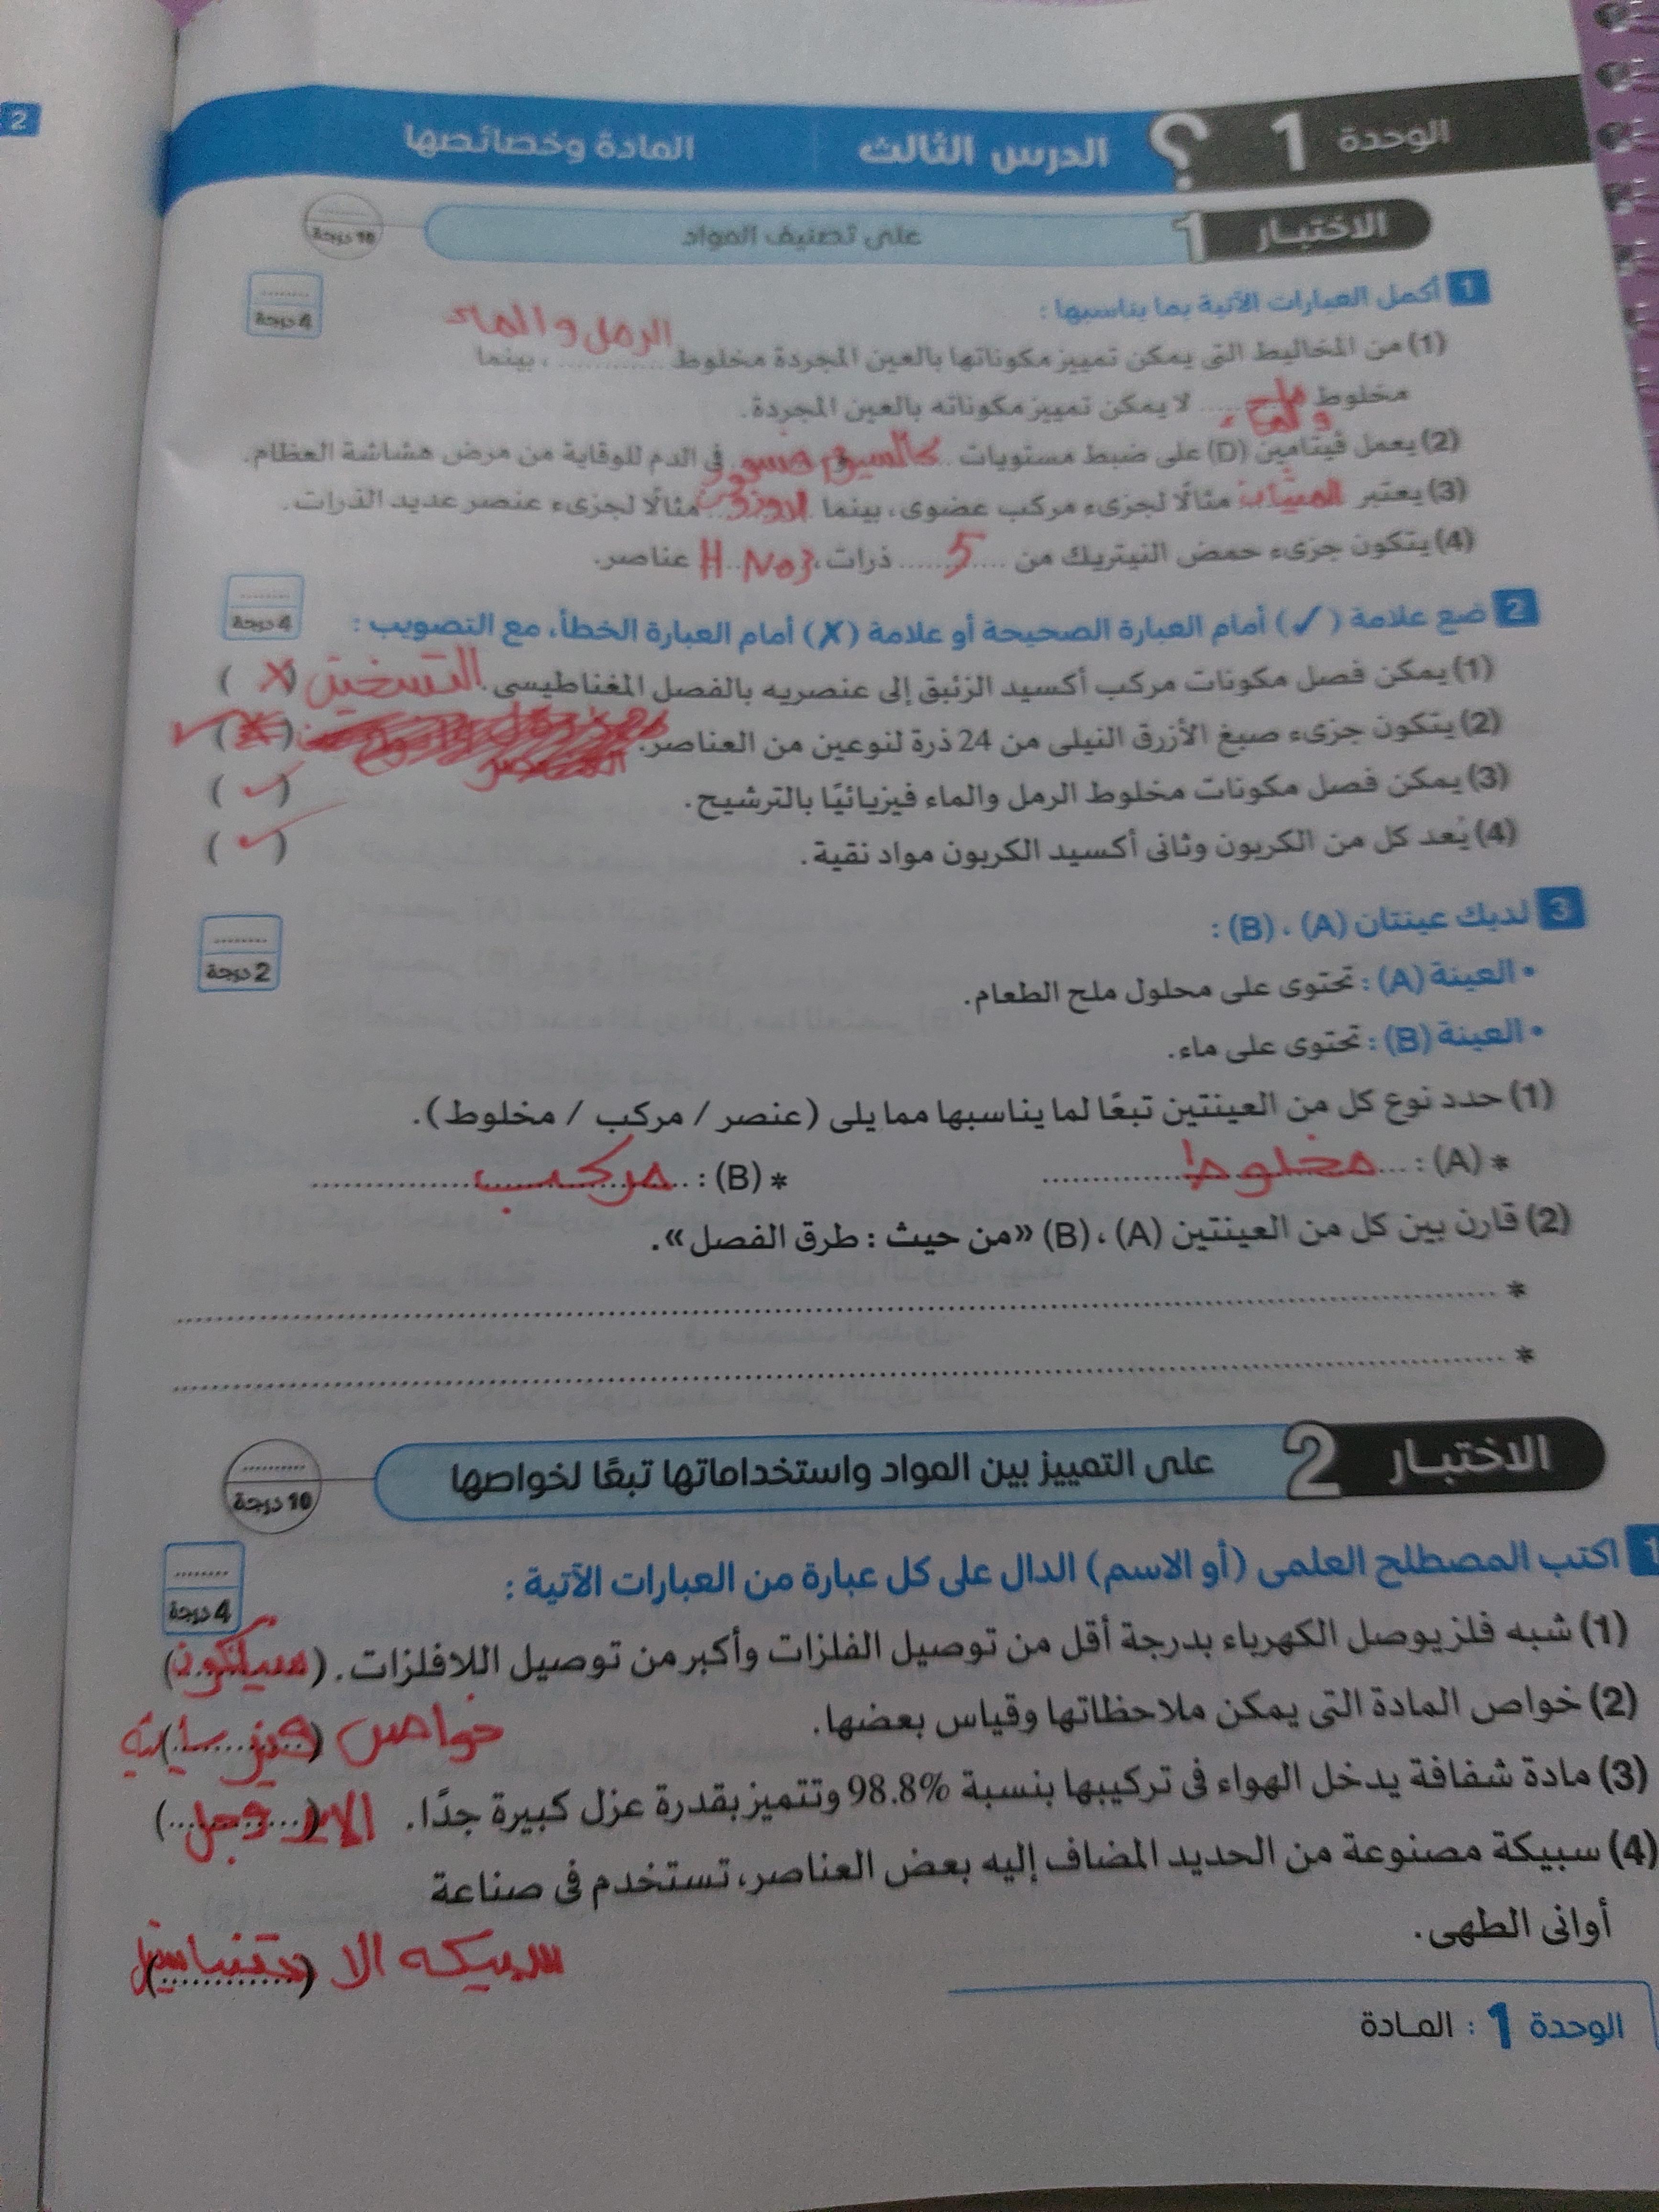 2
الوحدة 1 ؟ الدرس الثالث المادة وخصائصها
الاختبار 1 على تصنيف المواد
10 درجة
1 أكمل العبارات الآتية بما يناسبها :
4 درجة
(1) من المخاليط التى يمكن تمييز مكوناتها بالعين المجردة مخلوط الرمل والماء ، بينما
مخلوط ملح والماء لا يمكن تمييز مكوناته بالعين المجردة.
(2) يعمل ڤيتامين (D) على ضبط مستويات كالسيوم فى الدم للوقاية من مرض هشاشة العظام.
(3) يعتبر الميثان مثالًا لجزىء مركب عضوى، بينما الاوزون مثالًا لجزىء عنصر عديد الذرات.
(4) يتكون جزىء حمض النيتريك من 5 ذرات، H No3 عناصر.
2 ضع علامة (✓) أمام العبارة الصحيحة أو علامة (✗) أمام العبارة الخطأ، مع التصويب :
4 درجة
(1) يمكن فصل مكونات مركب أكسيد الزئبق إلى عنصريه بالفصل المغناطيسى. التسخين (X)
(2) يتكون جزىء صبغ الأزرق النيلى من 24 ذرة لنوعين من العناصر. ( ) ✓
(3) يمكن فصل مكونات مخلوط الرمل والماء فيزيائيًا بالترشيح. (✓)
(4) يُعد كل من الكربون وثانى أكسيد الكربون مواد نقية. (✓)
3 لديك عينتان (A) ، (B) :
2 درجة
• العينة (A) : تحتوى على محلول ملح الطعام.
• العينة (B) : تحتوى على ماء.
(1) حدد نوع كل من العينتين تبعًا لما يناسبها مما يلى (عنصر / مركب / مخلوط).
* (A) : مخلوط * (B) : مركب
(2) قارن بين كل من العينتين (A) ، (B) «من حيث : طرق الفصل».
*
*
الاختبار 2 على التمييز بين المواد واستخداماتها تبعًا لخواصها
10 درجة
1 اكتب المصطلح العلمى (أو الاسم) الدال على كل عبارة من العبارات الآتية :
4 درجة
(1) شبه فلز يوصل الكهرباء بدرجة أقل من توصيل الفلزات وأكبر من توصيل اللافلزات. (سيلكون)
(2) خواص المادة التى يمكن ملاحظاتها وقياس بعضها. خواص (فيزيائية)
(3) مادة شفافة يدخل الهواء فى تركيبها بنسبة 98.8% وتتميز بقدرة عزل كبيرة جدًا. (الايروجل)
(4) سبيكة مصنوعة من الحديد المضاف إليه بعض العناصر، تستخدم فى صناعة
أوانى الطهى. سبيكه
الوحدة 1 : المادة